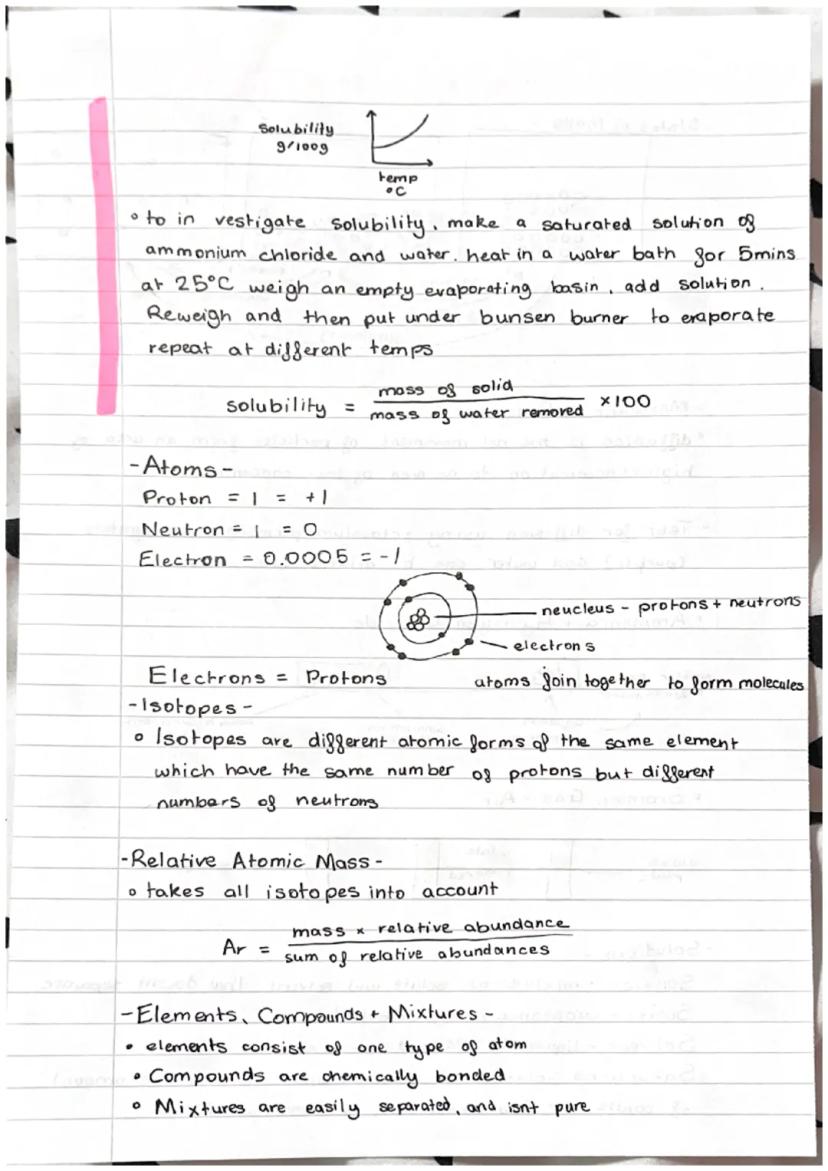 Solubility
g/100g
temp
°C
° to in vestigate solubility, make a saturated solution of
ammonium chloride and water. heat in a water bath for 5mins
at 25°C weigh an empty evaporating basin, add solution.
Reweigh and then put under bunsen burner to evaporate
repeat at different temps
solubility = mass of solid / mass of water removed ×100
-Atoms-
Proton = 1 = +1
Neutron = 1 = 0
Electron = 0.0005 = -1
neucleus - protons + neutrons
electrons
Electrons = Protons
atoms join together to form molecules
-Isotopes-
° Isotopes are different atomic forms of the same element
which have the same number of protons but different
numbers of neutrons
-Relative Atomic Mass-
° takes all isotopes into account
Ar = mass × relative abundance / sum of relative abundances
-Elements, Compounds + Mixtures-
• elements consist of one type of atom
• Compounds are chemically bonded
° Mixtures are easily separated, and isnt pure